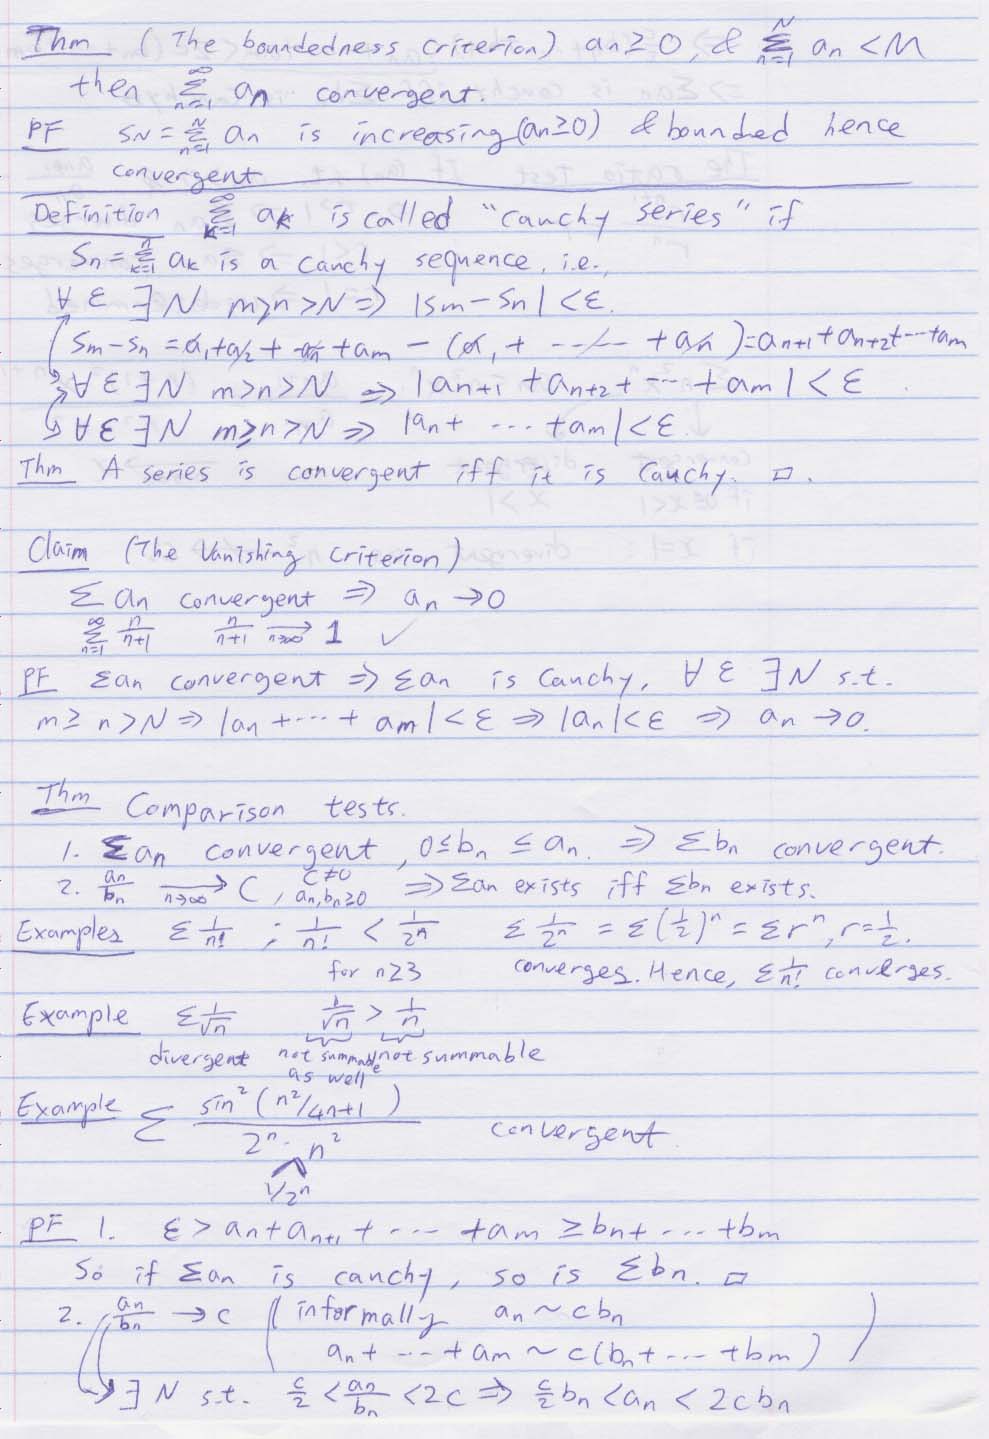 Thm (The boundedness criterion) an ≥ 0, & ∑_{n=1}^{N} an < M
then ∑_{n=1}^{∞} an convergent.
PF SN = ∑_{n=1}^{N} an is increasing (an≥0) & bounded hence
convergent
Definition ∑_{k=1}^{∞} ak is called "cauchy series" if
Sn = ∑_{k=1}^{n} ak is a cauchy sequence, i.e.,
∀ ε ∃ N m≥n >N => |sm - sn| < ε.
Sm-Sn = a1 + a2 + an + am - (a1 + ----- + an) = an+1 + an+2 + ... + am
∀ ε ∃ N m > n > N => |an+1 + an+2 + ... + am| < ε
∀ ε ∃ N m ≥ n > N => |an + ... + am| < ε.
Thm A series is convergent iff it is Cauchy. □.
Claim (The Vanishing Criterion)
∑ an convergent => an → 0
∑_{n=1}^{∞} n/n+1 n/n+1 →_{n→∞} 1 ✓
PF ∑an convergent => ∑an is Cauchy, ∀ ε ∃ N s.t.
m ≥ n > N => |an + ... + am| < ε => |an| < ε => an → 0.
Thm Comparison tests.
1. ∑an convergent, 0 ≤ bn ≤ an. => ∑bn convergent.
2. an/bn →_{n→∞} C, C≠0 an,bn≥0 => ∑an exists iff ∑bn exists.
Examples ∑ 1/n! ; 1/n! < 1/2^n ∑ 1/2^n = ∑(1/2)^n = ∑r^n, r=1/2.
for n≥3 converges. Hence, ∑ 1/n! converges.
Example ∑ 1/√n 1/√n > 1/n
divergent not summable not summable
as well
Example ∑ sin²(n²/4n+1) / 2^n · n² convergent.
^
1/2^n
PF 1. ε > an + an+1 + ... + am ≥ bn + ... + bm
So if ∑an is cauchy, so is ∑bn. □
2. an/bn → c (informally an ~ cbn
an + ... + am ~ c(bn + ... + bm) )
∃ N s.t. c/2 < an/bn < 2c => c/2 bn < an < 2cbn